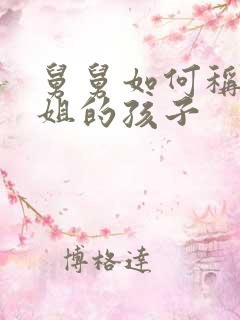 舅舅如何稱
姐的孩子
博格達